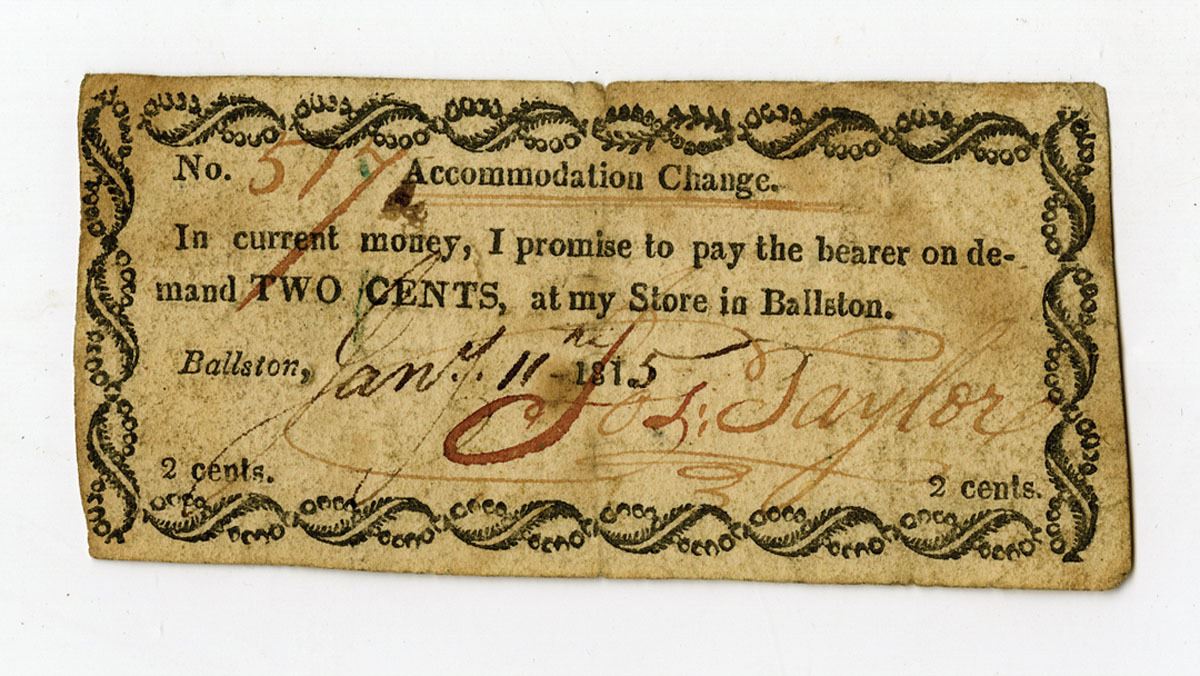 No. 517 Accommodation Change.
In current money, I promise to pay the bearer on de-
mand TWO CENTS, at my Store in Ballston.
Ballston, Jany. 11th 1815
Jos: Taylor
2 cents. 2 cents.